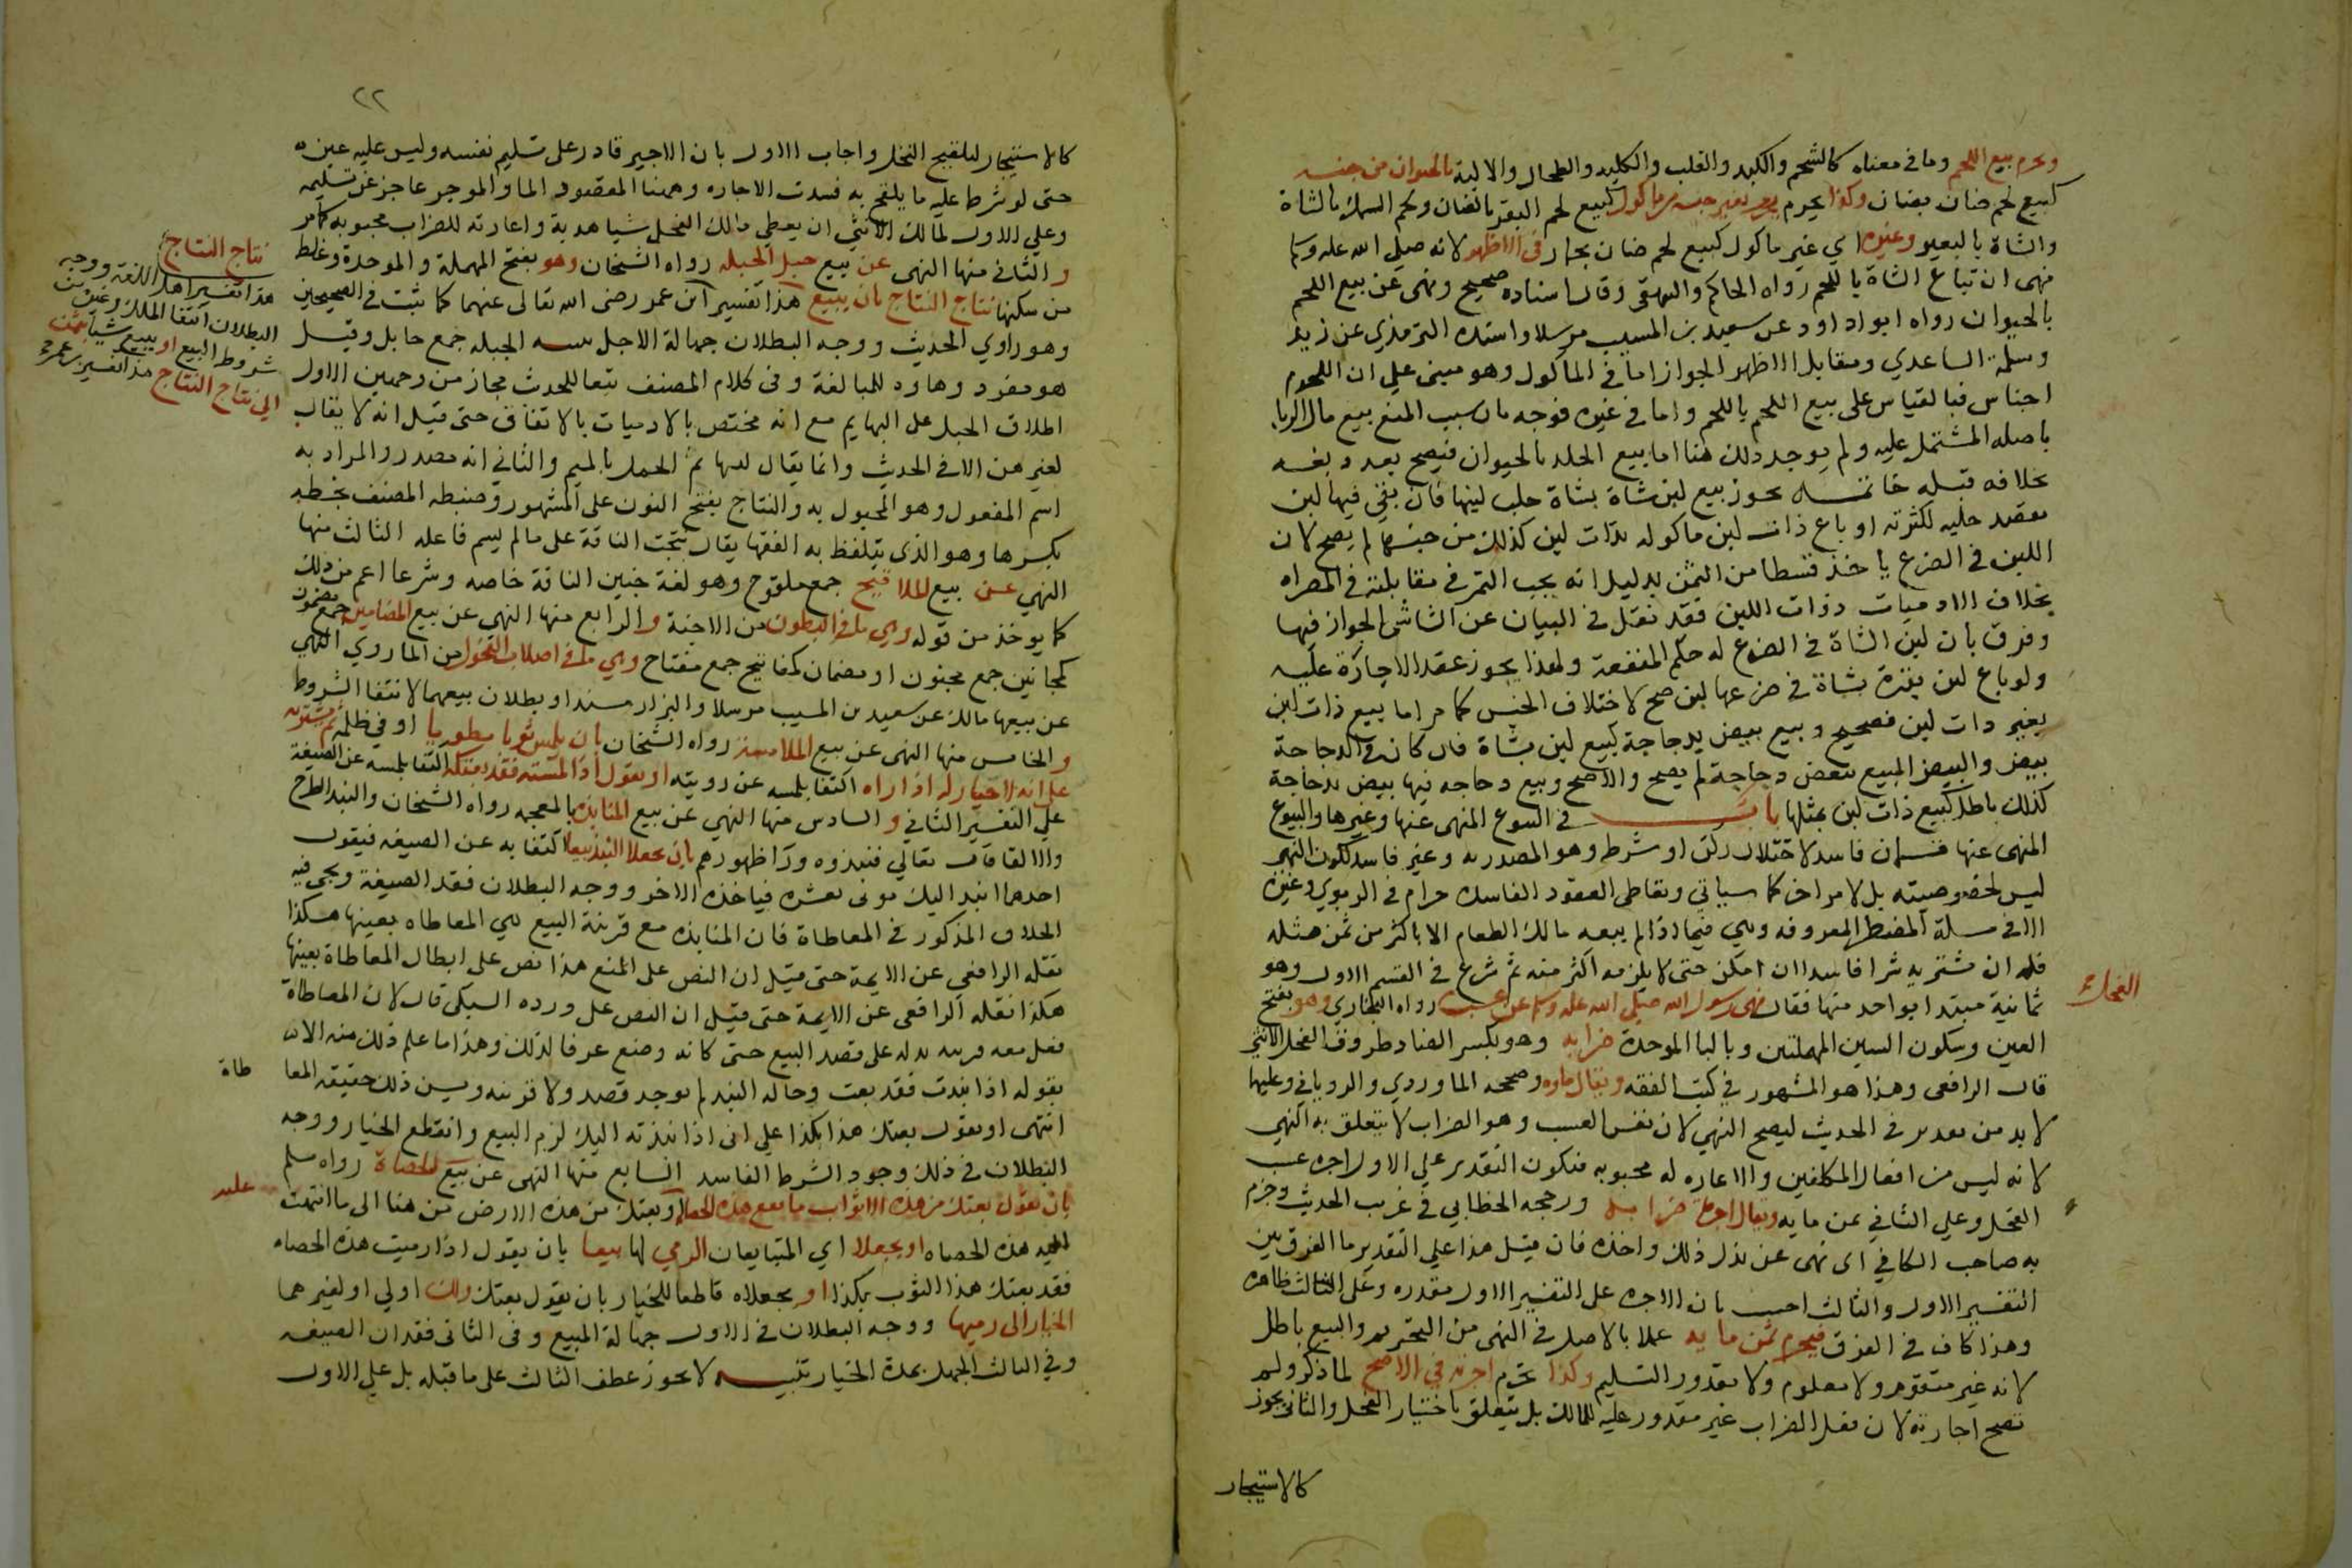 ويحرم بيع اللحم وما في معناه كالشحم والكبد والقلب والكلية والطحال والالية بالحيوان من جنسه
كبيع لحم ضان بضان وكذا يحرم بغير جنسه من ماكول كبيع لحم البقر بالضان ولحم السمك بالشاة
والشاة بالبعير وغيره اي غير ماكول كبيع لحم ضان بحمار في الاظهر لانه صلى الله عليه وسلم
نهى ان تباع الشاة باللحم رواه الحاكم والبيهقي وقال اسناده صحيح ونهى عن بيع اللحم
بالحيوان رواه ابو داود عن سعيد بن المسيب مرسلا واسنده الترمذي عن زيد
وسلمة الساعدي ومقابل الاظهر الجواز اما في الماكول وهو مبني على ان اللحوم
اجناس فبالقياس على بيع اللحم باللحم واما في غيره فوجه بان سبب المنع بيع مال الربا
باصله المشتمل عليه ولم يوجد ذلك هنا اما بيع الجلد بالحيوان فيصح بعد دبغه
بخلافه قبله خاتمه يجوز بيع لبن شاة بشاة حلب لبنها فان بقي فيها لبن
يقصد حلبه لكثرته او باع ذات لبن ماكولة بذات لبن كذلك من جنسها لم يصح لان
اللبن في الضرع ياخذ قسطا من الثمن بدليل انه يجب التمر في مقابلته في المصراه
بخلاف الادميات ذوات اللبن فقد نقل في البيان عن الشاشي الجواز فيها
وفرق بان لبن الشاة في الضرع له حكم المنفعة ولهذا يجوز عقد الاجارة عليه
ولو باع لبن بقرة بشاة في ضرعها لبن صح لاختلاف الجنس كما مر اما بيع ذات لبن
بغير ذات لبن فصحيح وبيع بيض بدجاجة كبيع لبن بشاة فان كان في الدجاجة
بيض والبيض المبيع بيض دجاجة لم يصح والاصح وبيع دجاجه فيها بيض بدجاجة
كذلك باطل كبيع ذات لبن بمثلها باب في البيوع المنهي عنها وغيرها والبيوع
المنهي عنها قسمان فاسد لاختلال ركن او شرط وهو المصدر به وغير فاسد لكون النهي
ليس لخصوصيته بل لامر اخر كما سياتي وتعاطي العقود الفاسدة حرام في الربوي وغيره
الا في مسلة المضطر المعروفه وهي فيما اذا لم يبعه مالك الطعام الا باكثر من ثمن مثله
فله ان يشتريه شرا فاسدا ان امكن حتى لا يلزمه اكثر منه ثم شرع في القسم الاول وهو
ثمانية مبتدا بواحد منها فقال نهى رسول الله صلى الله عليه وسلم عن عسب رواه البخاري وهو بفتح
الفحل
العين وسكون السين المهملتين وبالبا الموحدة ضرابه وهو بكسر الضاد طروق الفحل الانثى
قال الرافعي وهذا هو المشهور في كتب الفقه ويقال ماوه وصححه الماوردي والروياني وعليها
لا بد من تقدير في الحديث ليصح النهي لان نفس العسب وهو الضراب لا يتعلق به النهي
لانه ليس من افعال المكلفين والاعاره له محبوبه فيكون التقدير على الاول اجره عسب
الفحل وعلى الثاني ثمن مايه ويقال اجرة ضرابه ورجحه الخطابي في غريب الحديث وجزم
به صاحب الكافي اي نهى عن بذل ذلك واخذه فان قيل هذا على التقدير ما الفرق بين
التفسير الاول والثالث اجيب بان الاجره على التفسير الاول مقدره وعلى الثالث ظاهره
وهذا كاف في الفرق فيحرم ثمن مايه عملا بالاصل في النهي من التحريم والبيع باطل
لانه غير متقوم ولا معلوم ولا مقدور التسليم وكذا تحرم اجرته في الاصح لما ذكر ولم
تصح اجارته لان فعل الضراب غير مقدور عليه للمالك بل يتعلق باختيار الفحل والثاني يجوز
كالاستيجار
٢٢
كالاستيجار لتلقيح النخل واجاب الاول بان الاجير قادر على تسليم نفسه وليس عليه عين
حتى لو شرط عليه ما يلقح به فسدت الاجاره وههنا المقصود الما والموجر عاجز عن تسليمه
وعلى الاول لمالك الانثى ان يعطي مالك الفحل شيا هدية واعارته للضراب محبوبه كما مر
والثاني منها النهي عن بيع حبل الحبله رواه الشيخان وهو بفتح المهملة والموحدة وغلط
من سكنها نتاج النتاج بان يبيع هذا تفسير ابن عمر رضي الله تعالى عنهما كما ثبت في الصحيحين
نتاج النتاج
هذا تفسير اهل اللغة ووجه
البطلان انتفا الملك وغيره من
شروط البيع او يبيع شيا بثمن
الى نتاج النتاج هذا تفسير ابن عمر
وهو راوي الحديث ووجه البطلان جهالة الاجل الحبله جمع حابل وقيل
هو مفرد وهاوه للمبالغة وفي كلام المصنف تبعا للحدث مجاز من وجهين الاول
اطلاق الحبل على البهايم مع انه مختص بالادميات بالاتفاق حتى قيل انه لا يقال
لغيرهن الا في الحديث وانما يقال لها الحمل بالميم والثاني انه مصدر والمراد به
اسم المفعول وهو المحبول به والنتاج بفتح النون على المشهور وضبطه المصنف بخطه
بكسرها وهو الذي يتلفظ به الفقها يقال نتجت الناقة على ما لم يسم فاعله الثالث منها
النهي عن بيع الملاقيح جمع ملقوح وهو لغة جنين الناقة خاصه وشرعا اعم من ذلك
كما يوخذ من قوله وهي ما في البطون من الاجنة والرابع منها النهي عن بيع المضامين جمع مضمون
كمجانين جمع مجنون او مضمان كمفاتيح جمع مفتاح وهي ما في اصلاب الفحول من الما روي النهي
عن بيعها مالك عن سعيد بن المسيب مرسلا والبزار مسندا وبطلان بيعهما لانتفا الشروط
والخامس منها النهي عن بيع الملامسة رواه الشيخان بان يلمس ثوبا مطويا او في ظلمة ثم يشتريه
على انه لا خيار له اذا راه اكتفا بلمسه عن رويته او يقول اذا لمسته فقد بعتكه اكتفا بلمسه عن الصيغة
على التفسير الثاني والسادس منها النهي عن بيع المنابذة بالمعجمه رواه الشيخان والنبذ الطرح
والالقا قال تعالى فنبذوه ورا ظهورهم بان يجعلا النبذ بيعا اكتفا به عن الصيغه فيقول
احدهما انبذ اليك ثوبي بعشره فياخذه الاخر ووجه البطلان فقد الصيغة ويجي فيه
الخلاف المذكور في المعاطاة فان المنابذه مع قرينة البيع هي المعاطاه بعينها هكذا
نقله الرافعي عن الايمة حتى قيل ان النص على المنع هذا نص على ابطال المعاطاة بعينها
هكذا نقله الرافعي عن الايمة حتى قيل ان النص على ورده السبكي قال لان المعاطاة
فعل معه قرينه يدل على قصد البيع حتى كانه وضع عرفا لذلك وهذا ما علم ذلك منه الا ان
بقوله اذا نبذت فقد بعت وحاله النبذ لم يوجد قصد ولا قرينه وليس ذلك حقيقه المعا
طاة
انتهى او يقول بعتك هذا بكذا على اني اذا نبذته اليك لزم البيع وانقطع الخيار ووجه
البطلان في ذلك وجود الشرط الفاسد السابع منها النهي عن بيع الحصاة رواه مسلم
بان يقول بعتك من هذه الاثواب ما تقع هذه الحصاة او بعتك من هذه الارض من هنا الى ما انتهت
عليه
اليه هذه الحصاه او يجعلا اي المتبايعان الرمي لها بيعا بان يقول اذا رميت هذه الحصاه
فقد بعتك هذا الثوب بكذا او يجعلاه قاطعا للخيار بان يقول بعتك ولك او لي او لغيرهما
الخيار الى رميها ووجه البطلان في الاول جهالة المبيع وفي الثاني فقدان الصيغه
وفي الثالث الجهل بمدة الخيار تنبيه لا يجوز عطف الثالث على ما قبله بل على الاول